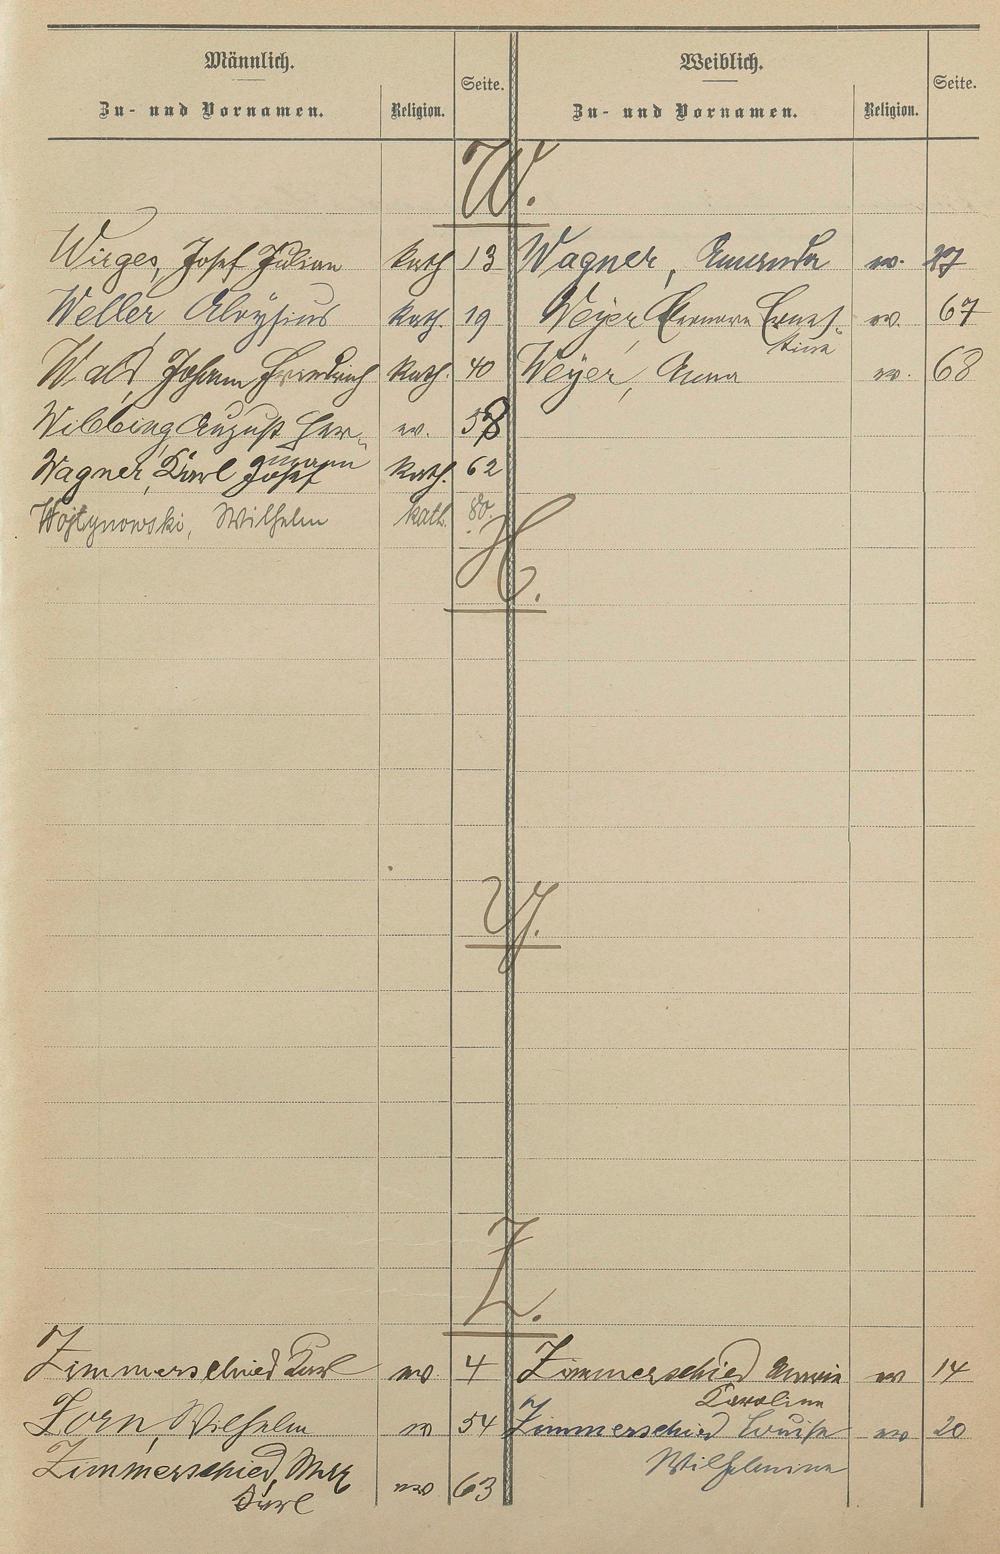 Männlich.
Zu- und Vornamen.
Religion.
Seite.
Weiblich.
Zu- und Vornamen.
Religion.
Seite.
W.
Wirges, Josef Julian kath 13
Weller Aloÿsius kath. 19
Wald, Johann Friedrich kath. 40
Wibbing, August Her-
mann ev. 58
Wagner, Karl Josef kath. 62
Wojtynowski, Wilhelm kath. 80.
Wagner, Amanda ev. 27
Weyer, Ernes-
tina ev. 67
Weyer, Anna ev. 68
X.
Y.
Z.
Zimmerschied Karl ev. 4
Zorn, Wilhelm ev 54
Zimmerschied, Max
Karl ev 63
Zimmerschied Maria
Karoline ev 14
Zimmerschied Louise
Wilhelmine ev 20